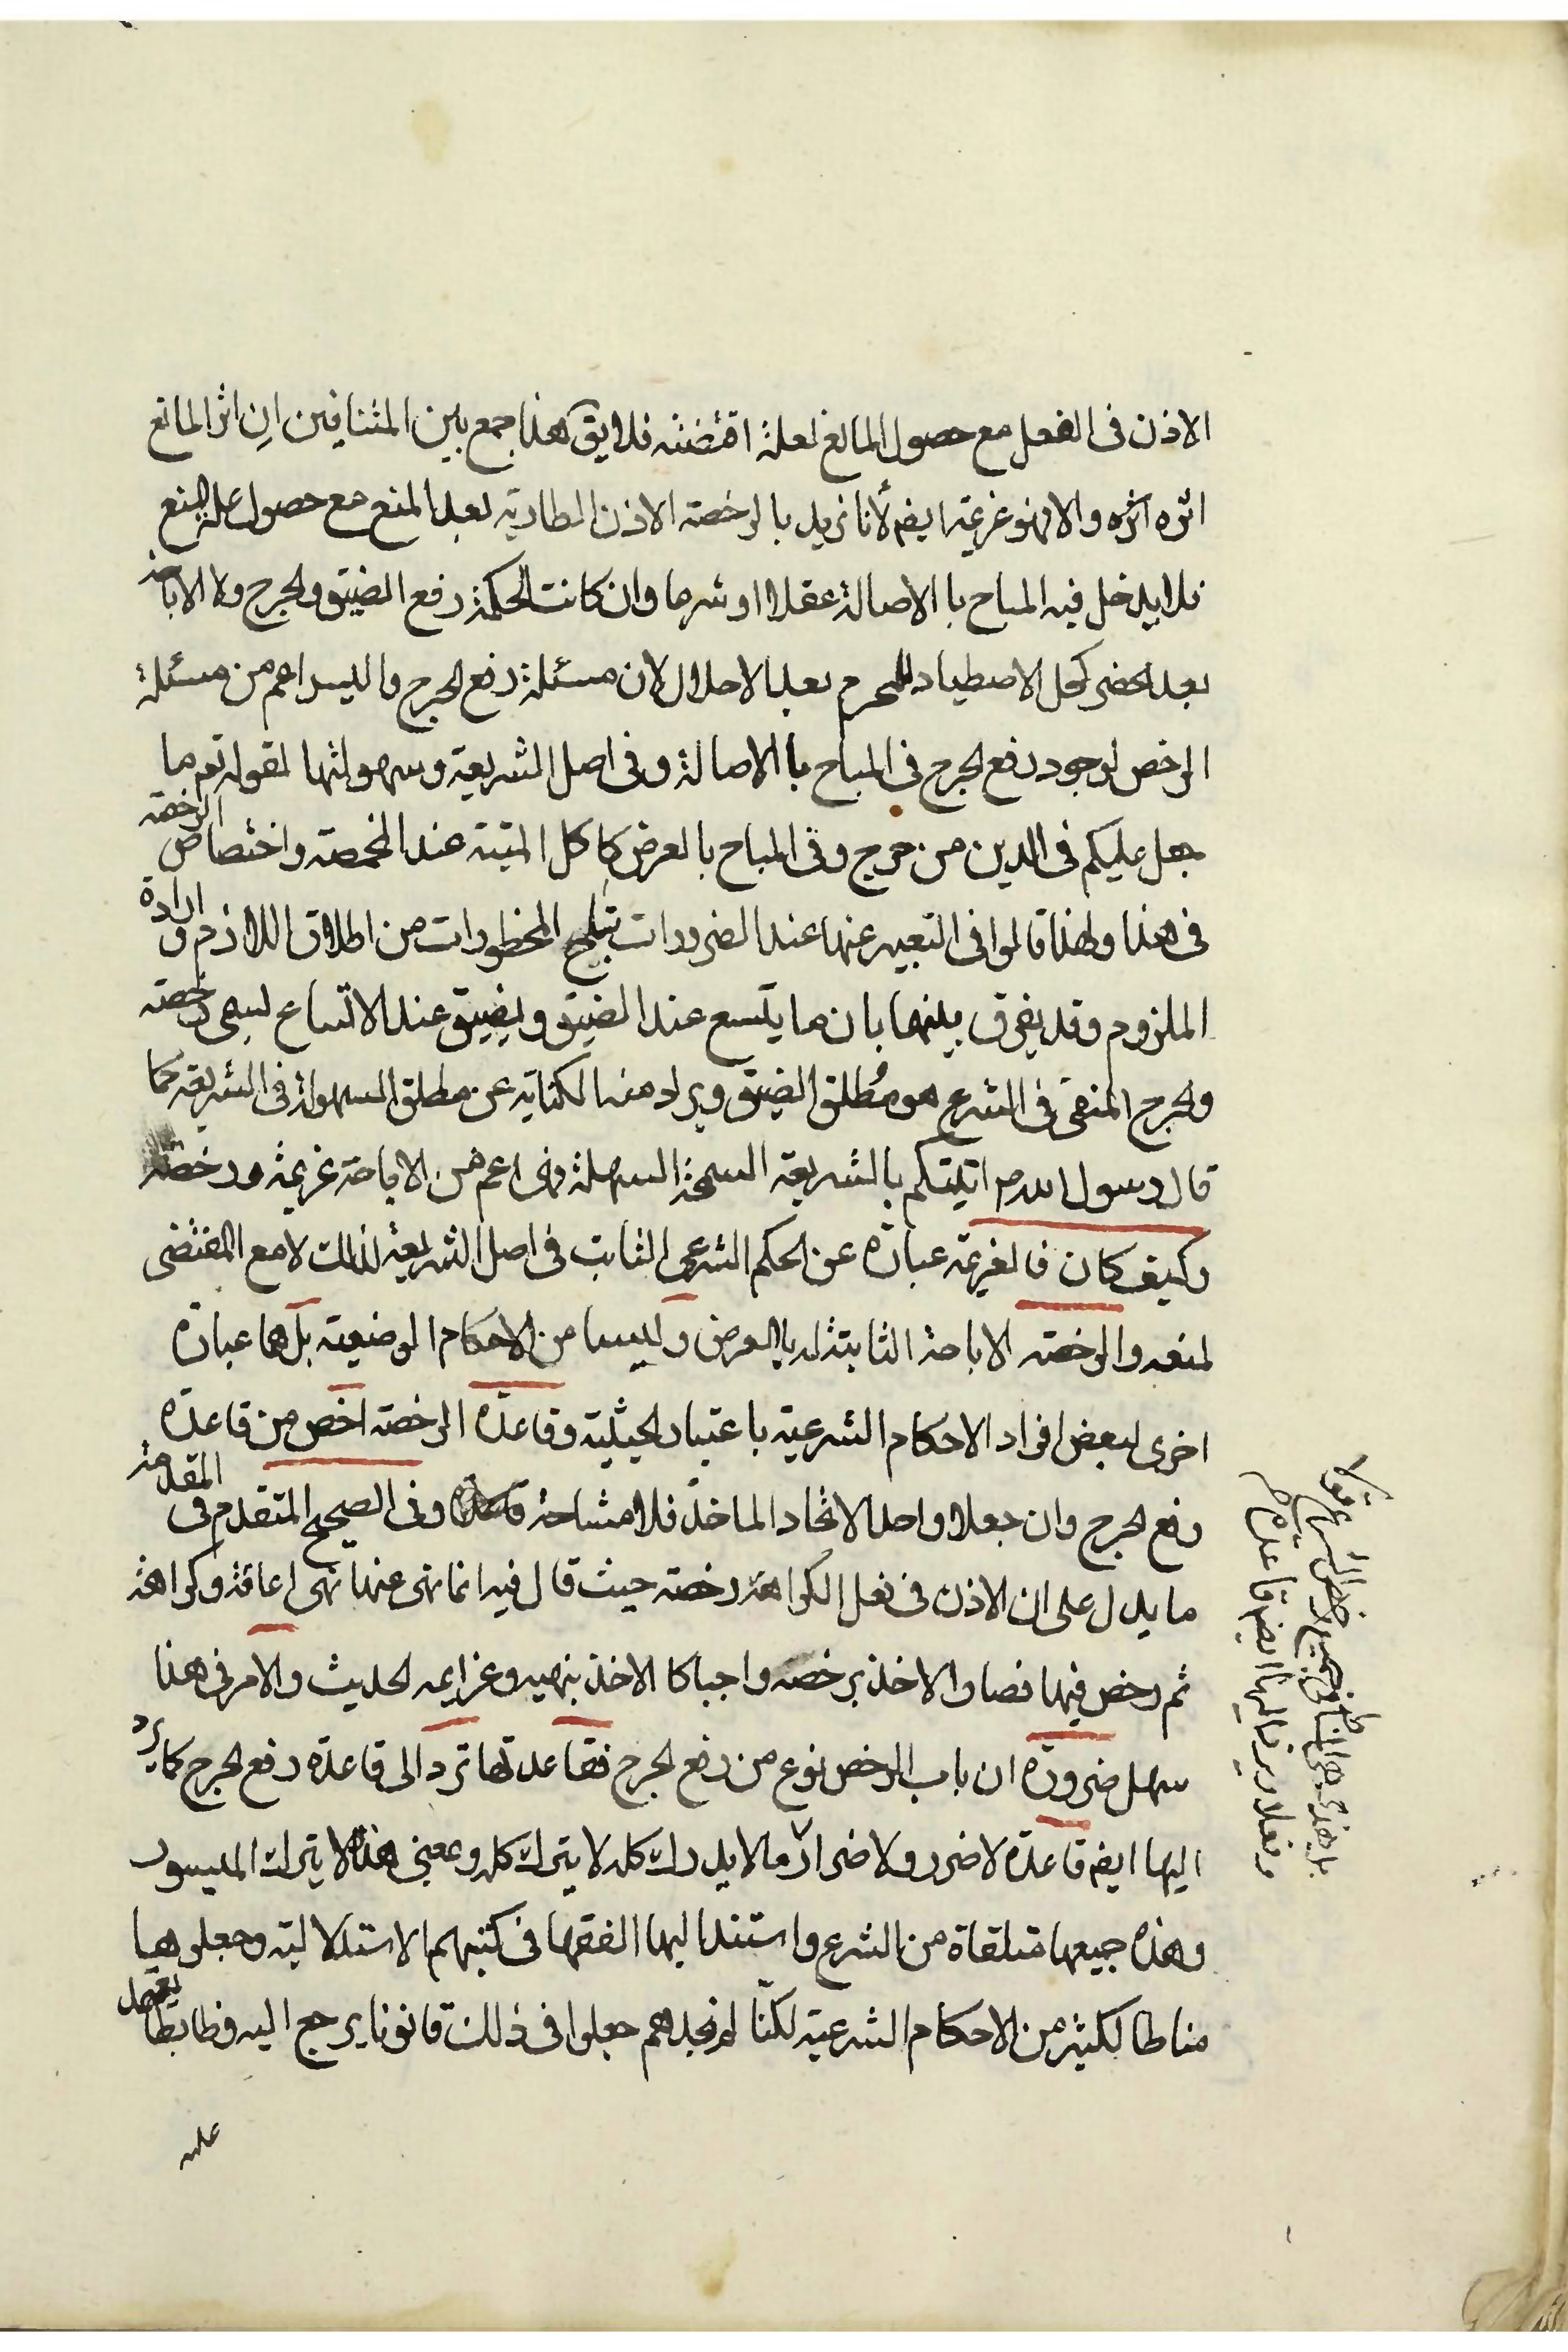 الاذن فى الفعل مع حصول المانع لعلة اقتضته فلا يق هذا جمع بين المتنافين ان اثر المانع
اثره اثره والا فهو غزيمة ايضم لأنا نريد بالرخصته الاذن الطاريه بعد المنع مع حصول علة المنع
فلا يدخل فيه المباح با الاصالة عقلا او شرعا وان كانت الحكمة رفع الضيق والحرج ولا الاباحة
بعد الحضر كحل الاصطياد للمحرم بعد الاحلال لان مسئلة رفع الحرج واليسر اعم من مسئلة
الرخص لوجود رفع الحرج فى المباح با الاصالة وفى اصل الشريعة وسهولتها لقوله تعم ما
جعل عليكم فى الدين من حرج وفى المباح بالعرض كاكل الميتة عند المخمصة واختصاص الرخصة
فى هذا ولهذا قالوا فى التعبير عنها عند الضرورات تبيح المحظورات من اطلاق اللازم وارادة
الملزوم وقد يفرق بينهما بان ما يتسع عند الضيق ويضيق عند الاتساع ليسمى رخصته
والحرج المنفى فى الشرع هو مُطلق الضيق ويراد منه الكناية عن مطلق السهولة فى الشريعة كما
قال رسول الله ص اتيتكم بالشريعة السمحة السهلة وهى اعم من الاباحة غزيمة ورخصة
وكيف كان فالغزيمة عبارة عن الحكم الشرعى الثابت فى اصل الشريعة لذلك لا مع المقتضى
لمنعه والرخصته الاباحة الثابتة له با العرض وليسا من الاحكام الوضعية بل هما عبارة
اخرى لبعض افراد الاحكام الشرعية باعتبار الحيثية وقاعدة الرخصته اخص من قاعدة
رفع الحرج وان جعلا واحدا لاتحاد الماخذ فلا مشاحة وفى الصحيح المتقدم فى المقدمة
ما يدل على ان الاذن فى فعل الكراهة رخصته حيث قال فيه انما نهى عنها نهى اعافة وكراهة
ثم رخص فيها فصار الاخذ برخصه واجبا كا الاخذ بنهيه وغزايمه الحديث والامر فى هذا
سهل ضرورة ان باب الرخص نوع من رفع الحرج فقاعدتها ترد الى قاعدة رفع الحرج كما يرد
اليها ايضم قاعدة لا ضرر ولا ضرار وما لا يدرك كله لا يترك كله وعمنى هذا لا يترك الميسور
وهذه جميعها متلقاة من الشرع واستند اليها الفقها فى كتبهم الاستدلالية وجعلوها
مناطا لكثير من الاحكام الشرعية لكنّا لم نجدهم جعلوا فى ذلك قانونا يرجع اليه وظابطا يعتمد
عليه